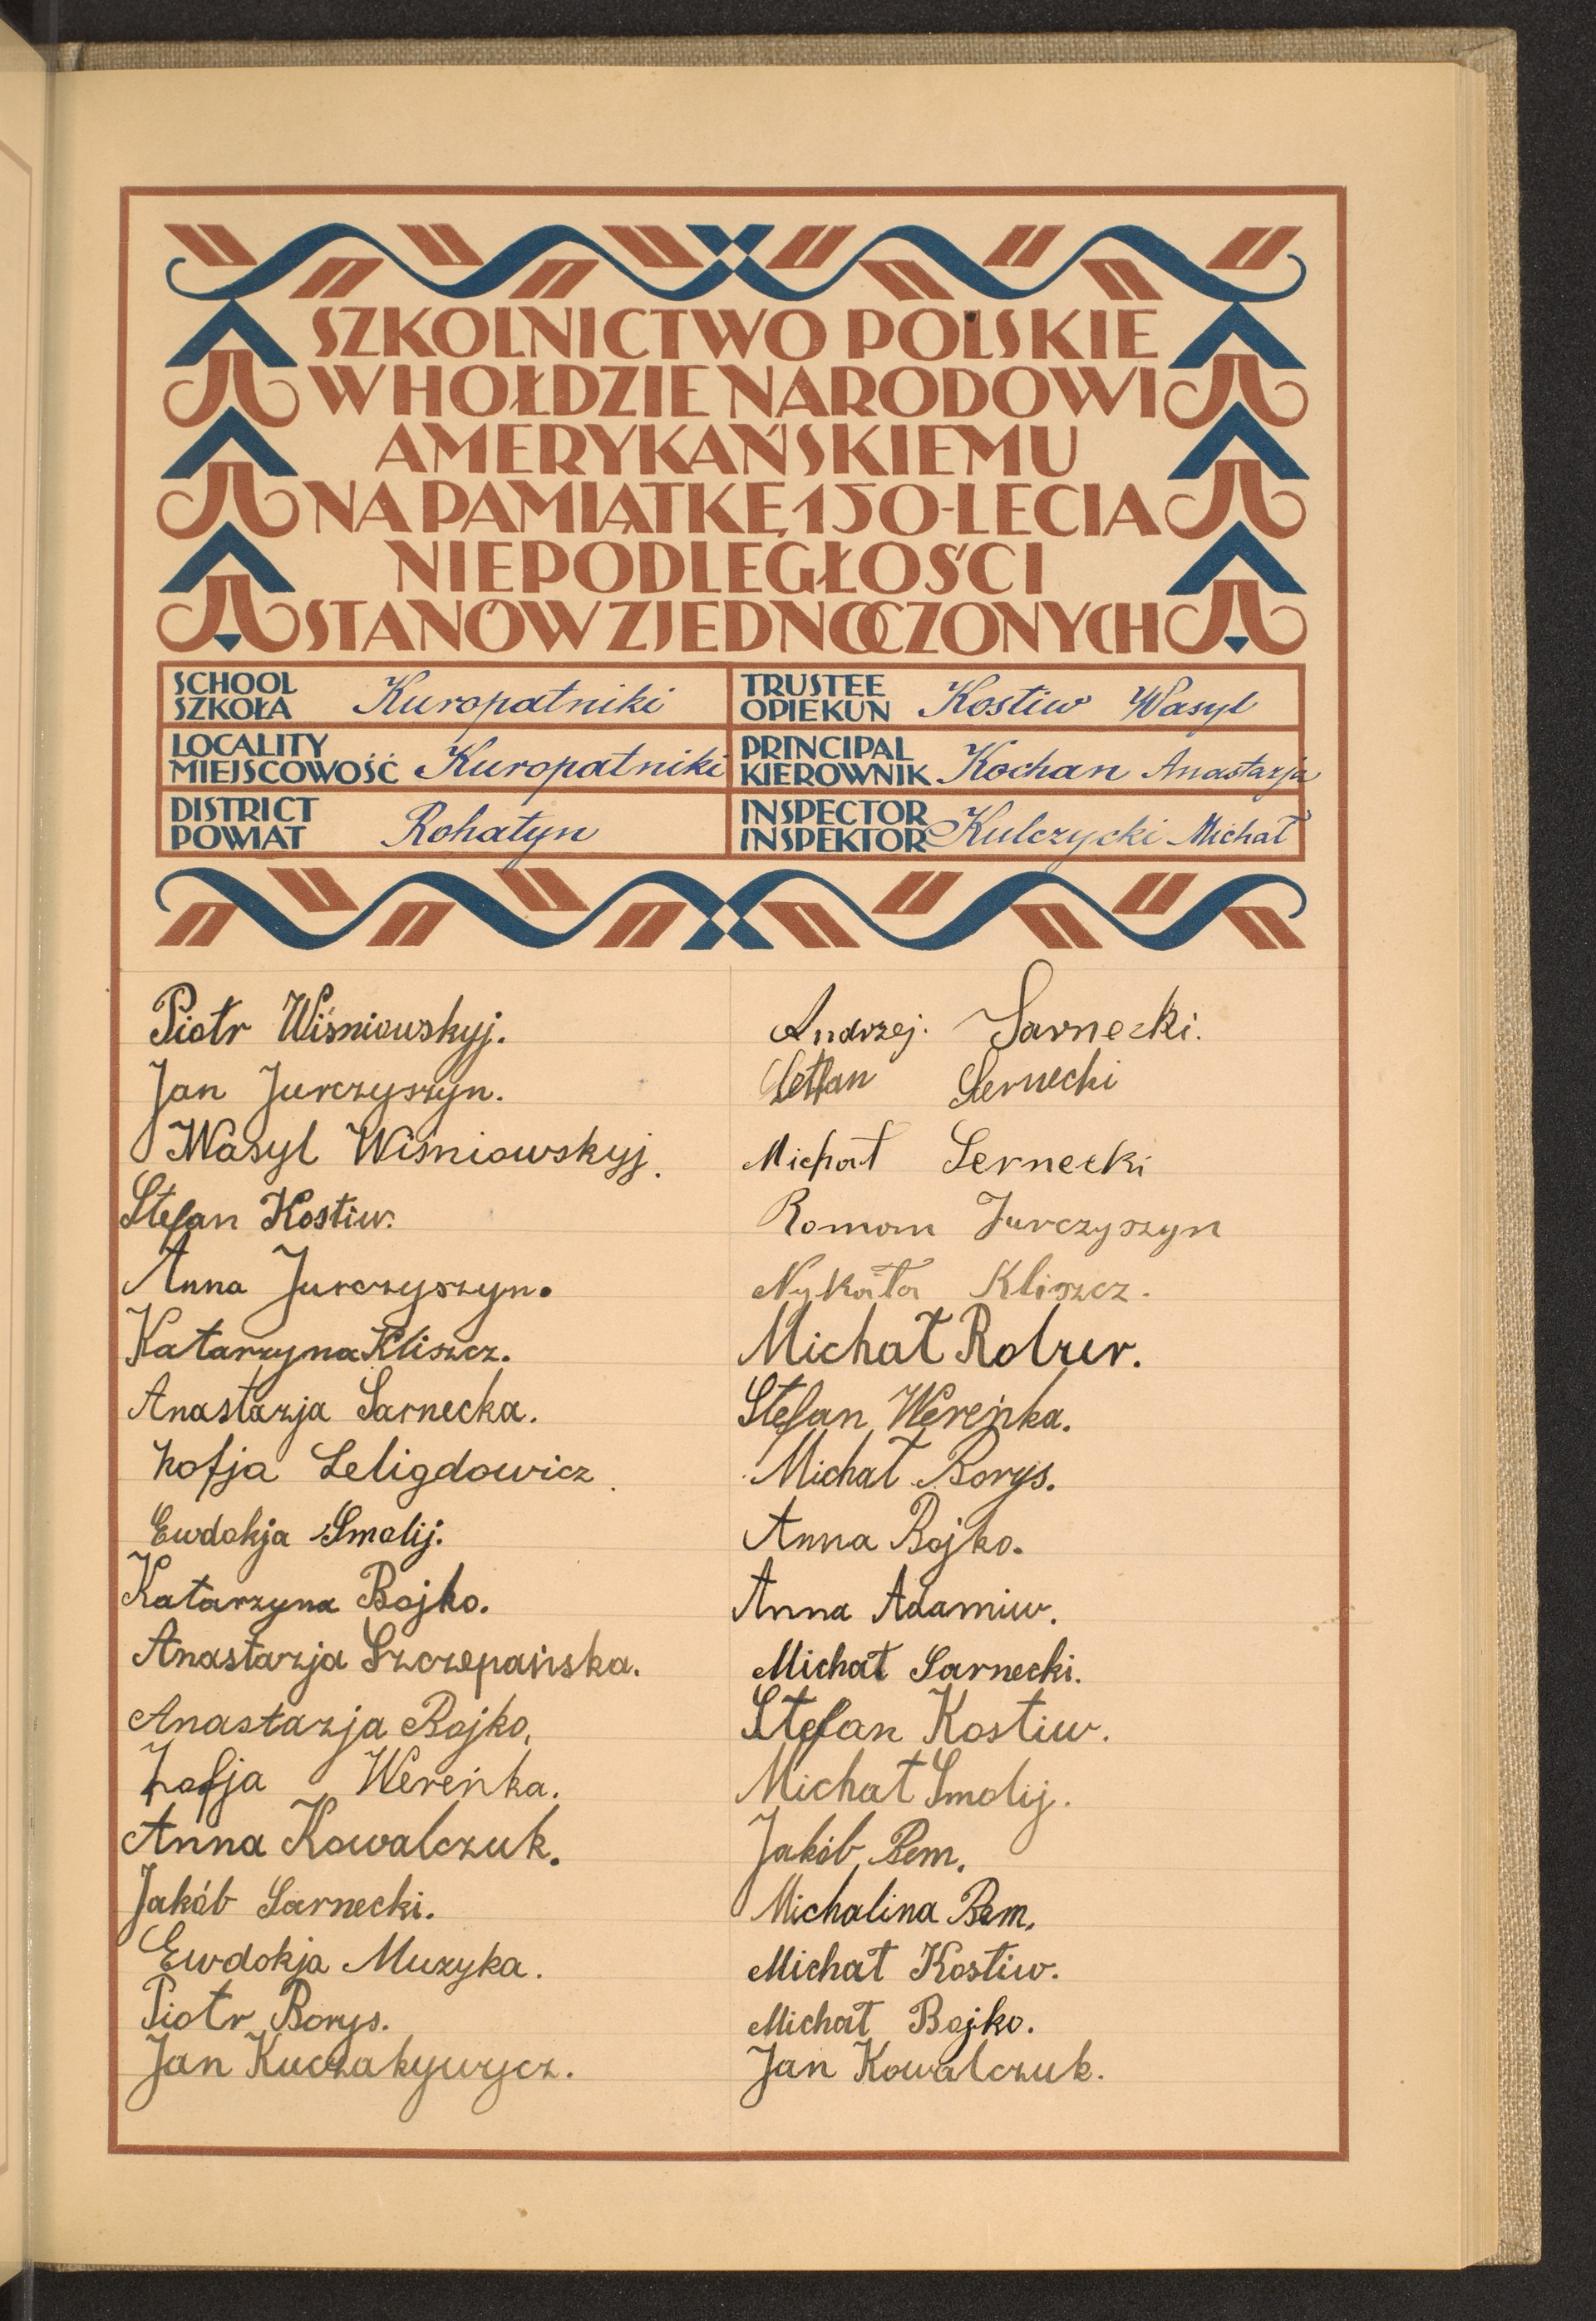 SZKOLNICTWO POLSKIE
W HOŁDZIE NARODOWI
AMERYKAŃSKIEMU
NA PAMIĄTKĘ 150-LECIA
NIEPODLEGŁOŚCI
STANÓW ZJEDNOCZONYCH
SCHOOL
SZKOŁA Kuropatniki
LOCALITY
MIEJSCOWOŚĆ Kuropatniki
DISTRICT
POWIAT Rohatyn
TRUSTEE
OPIEKUN Kostiw Wasyl
PRINCIPAL
KIEROWNIK Kochan Anastazja
INSPECTOR
INSPEKTOR Kulczycki Michał
Piotr Wiśniowskyj.
Jan Jurczyszyn.
Wasyl Wiśniowskyj.
Stefan Kostiw.
Anna Jurczyszyn.
Katarzyna Kliszcz.
Anastazja Sarnecka.
Zofja Seligdowicz.
Ewdokja Smolij.
Katarzyna Bojko.
Anastazja Szczepańska.
Anastazja Bojko.
Zofja Wereńka.
Anna Kowalczuk.
Jakób Sarnecki.
Ewdokja Muzyka.
Piotr Borys.
Jan Kuczakywycz.
Andrzej Sarnecki.
Sernecki
Michał Sernecki
Roman Jurczyszyn
Nykoła Kliszcz.
Michał
Stefan Wereńka.
Michał Borys.
Anna Bojko.
Anna Adamiw.
Michał Sarnecki.
Stefan Kostiw.
Michał Smolij.
Jakób Bem.
Michalina Bem.
Michał Kostiw.
Michał Bojko.
Jan Kowalczuk.